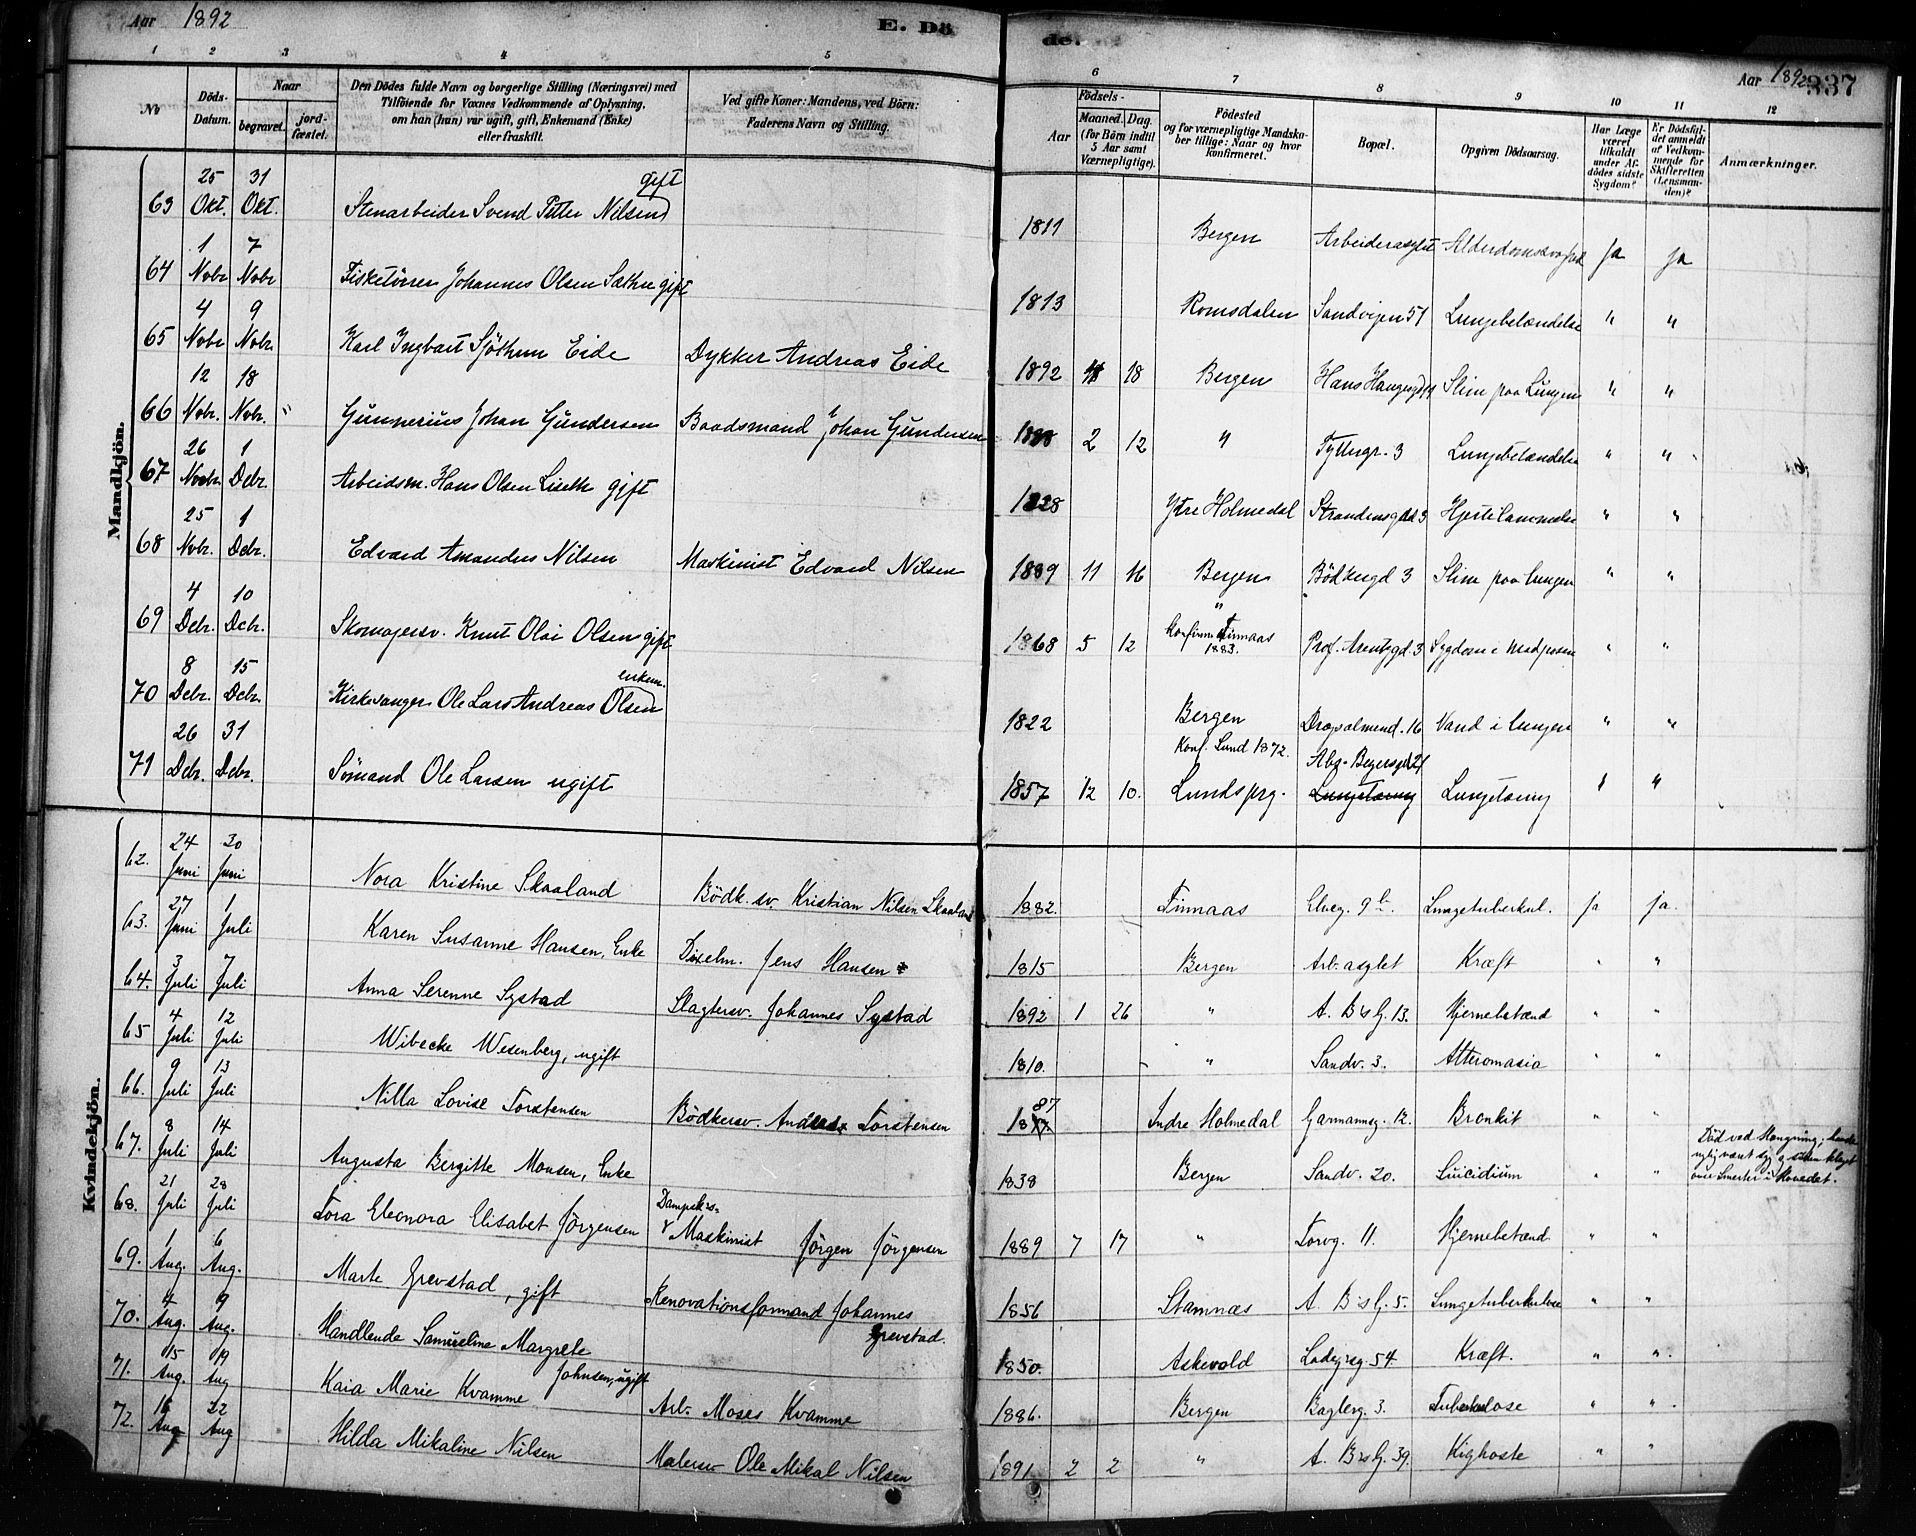 Aar 1892
E. Dö
de.
Aar 1892
337
1 2 3 4 5 6 7 8 9 10 11 12
No
Döds-Datum.
Naar
begravet.
jord-fæstet.
Den Dödes fulde Navn og borgerlige Stilling (Næringsvei) med
Tilföiende for Voxnes Vedkommende af Oplysning,
om han (hun) var ugift, gift, Enkemand (Enke)
eller fraskilt.
Ved gifte Koner: Mandens, ved Börn:
Faderens Navn og Stilling.
Födsels-
Aar
Maaned. Dag.
(for Börn indtil
5 Aar samt
Værnepligtige).
Födested
og for værnepligtige Mandska-
ber tillige: Naar og hvor
konfirmeret.
Bopæl.
Opgiven Dödsaarsag.
Har Læge
været
tilkaldt
under Af-
dödes sidste
Sygdom?
Er Dödsfal-
det anmeldt
af Vedkom-
mende for
Skifteretten
(Lensman-
den)?
Anmærkninger.
Mandkjön.
63 25 Okt. 31 Okt. Stenarbeider Svend Petter Nilsen gift 1811 Bergen Arbeiderasylet Ja ja
64 1 Nobr 7 Nobr Fisketörrer Johannes Olsen Sæthre gift 1813 Romsdalen Sandvigen 51 Lungebetændelse " "
65 4 Nobr 9 Nobr. Karl Ingbart Sjöthun Eide Dykker Andreas Eide 1892 18 Bergen Slim paa Lungen " "
66 12 Nobr. 18 Nobr. " Gunnerius Johan Gundersen Baadsmand Johan Gundersen 2 12 " Tyttegr. 3 Lungebetændelse " "
67 26 Novbr. 1 Debr. Arbeidsm. Hans Olsen Liseth gift 1828 Ytre Holmedal Strandensgd 3 Hjertelammelse " "
68 25 Nobr. 1 Debr. Edvard Amandus Nilsen Maskinist Edvard Nilsen 1889 11 16 Bergen Bödkergd 3 Slim paa Lungen " "
69 4 Debr. 10 Debr. Skomagersv. Knut Olai Olsen gift 1868 5 12 " Konfirm. Finnaas 1883. Prof. Arentzgd. 3 Sygdom i " "
70 8 Debr. 15 Debr. Kirkesanger Ole Lars Andreas Olsen enkem. 1822 Bergen 16 Vand i Lungen " "
71 26 Debr. 31 Debr. Sömand Ole Larsen ugift 1857 12 10. Konf. Lund 1872. Lundsprg. Abg. Beyersgd 21 Lungetæring Lungetæring " "
Kvindekjön.
62. 24 Juni 30 Juni Nora Kristine Skaaland Bödk. sv. Kristian Nilsen Skaaland 1882. Finnaas Elveg. 9 b. Lungetuberkul. ja ja.
63. 27 Juni 1 Juli Karen Susanne Hansen, Enke Jens Hansen 1815 Bergen Arb. asylet Kræft " "
64. 3 Juli 7 Juli Anna Serenne Systad Slagtersv. Johannes Systad 1892 1 26 " A. B's G. 13. Hjernebetænd " "
65 4 Juli 12 Juli Wibecke Wesenberg, ugift 1810. " Sandv. 3. Atteromasia " "
66. 9 Juli 13 Juli Nilla Lovise Torstensen Bödkersv. Anders Torstensen 1887 Indre Holmedal Garmannsg. 12. Bronkit " "
67. 8 Juli 14 Juli Augusta Bergitte Monsen, Enke 1838 Bergen Sandv. 20. Suicidium " " Död ved Hængning;
over Smerter i Hovedet.
68. 21 Juli 28 Juli Tora Eleonora Elisabet Jörgensen Dampsk.s- Maskinist Jörgen Jörgensen 1889 7 17 " Torvg. 11. Hjernebetænd " "
69. 1 Aug. 6 Aug. Marte Grevstad, gift Renovationsformand Johannes Grevstad. 1856 Stamnæs A. B's G. 5. Lungetuberkulose " "
70. 4 Aug. 9 Aug. Handlende Samueline Margrete Johnsen, ugift 1850. Askevold Ladegrsg. 54. Kræft. " "
71. 15 Aug. 19 Aug Kaia Marie Kvamme Arb. Moses Kvamme 1886. Bergen Baglerg. 3. Tuberkulose " "
72. 16 Aug 22 Aug Hilda Mikaline Nilsen Malersv Ole Mikal Nilsen 1891 2 2 " A. B's G. 39. Kighoste " "